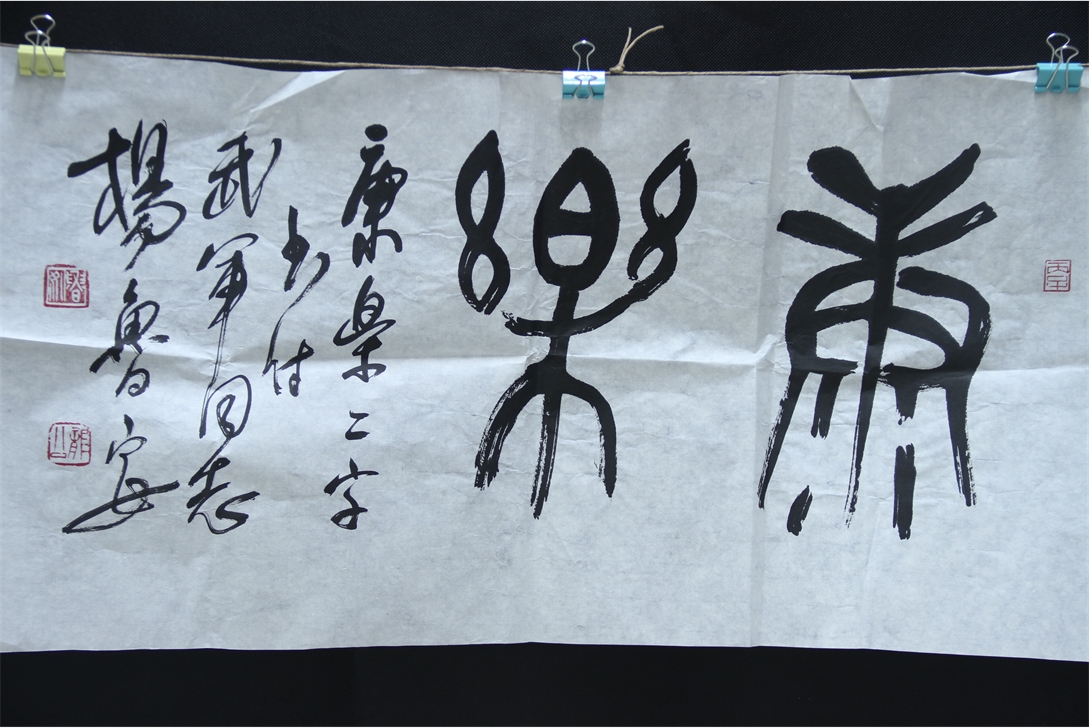 康樂
康樂二字
书付
武军同志
楊魯安